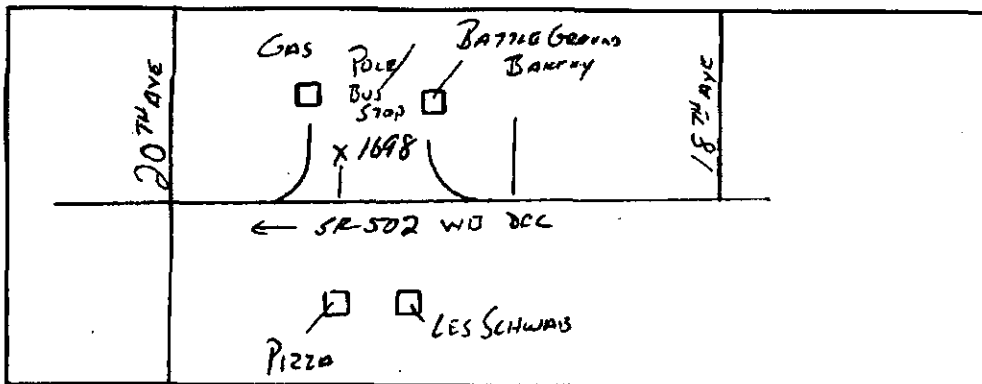 GAS
POLE/
BUS
STOP
BATTLE GROUND
BAKERY
20TH AVE
18TH AVE
X 1698
← SR-502 WB DEC
PIZZA
LES SCHWAB